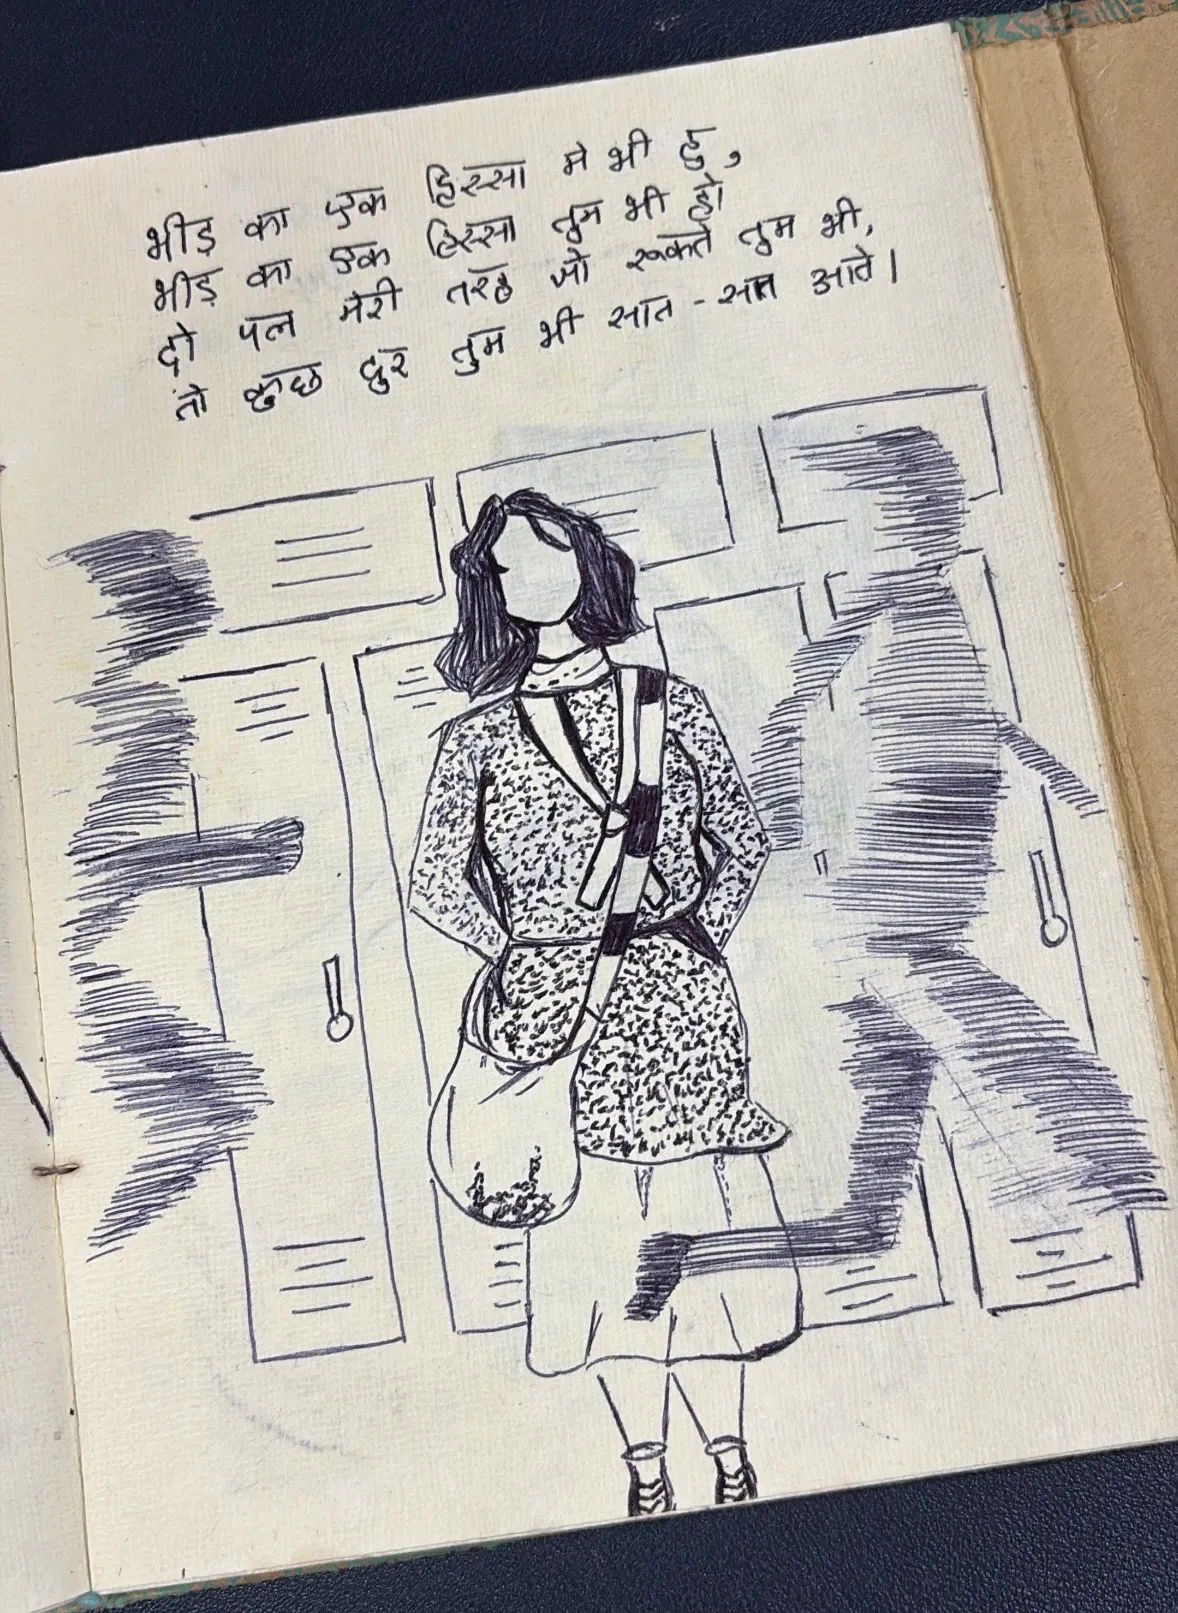 भीड़ का एक हिस्सा मे भी हु,
भीड़ का एक हिस्सा तुम भी हो
दो पल मेरी तरह जो रूकते तुम भी,
तो कुछ दुर तुम भी सात-सात आते।